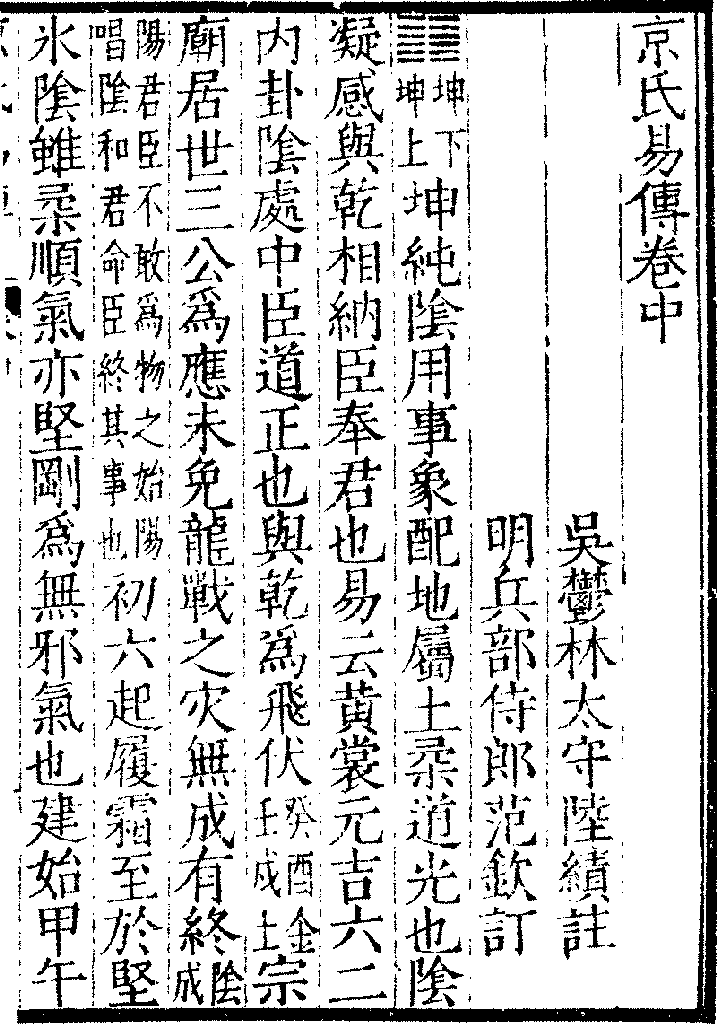 京氏易傳卷中
吳鬱林太守陸績註
明兵部侍郎范欽訂
䷁坤下坤上坤純陰用事象配地屬土柔道光也陰
凝感與乾相納臣奉君也易云黃裳元吉六二
内卦陰處中臣道正也與乾爲飛伏癸酉金壬成土宗
廟居世三公爲應未免龍戰之灾無成有終陰成
陽君臣不敢爲物之始陽唱陰和君命臣終其事也初六起履霜至於堅
氷陰雖柔順氣亦堅剛爲無邪氣也建始甲午